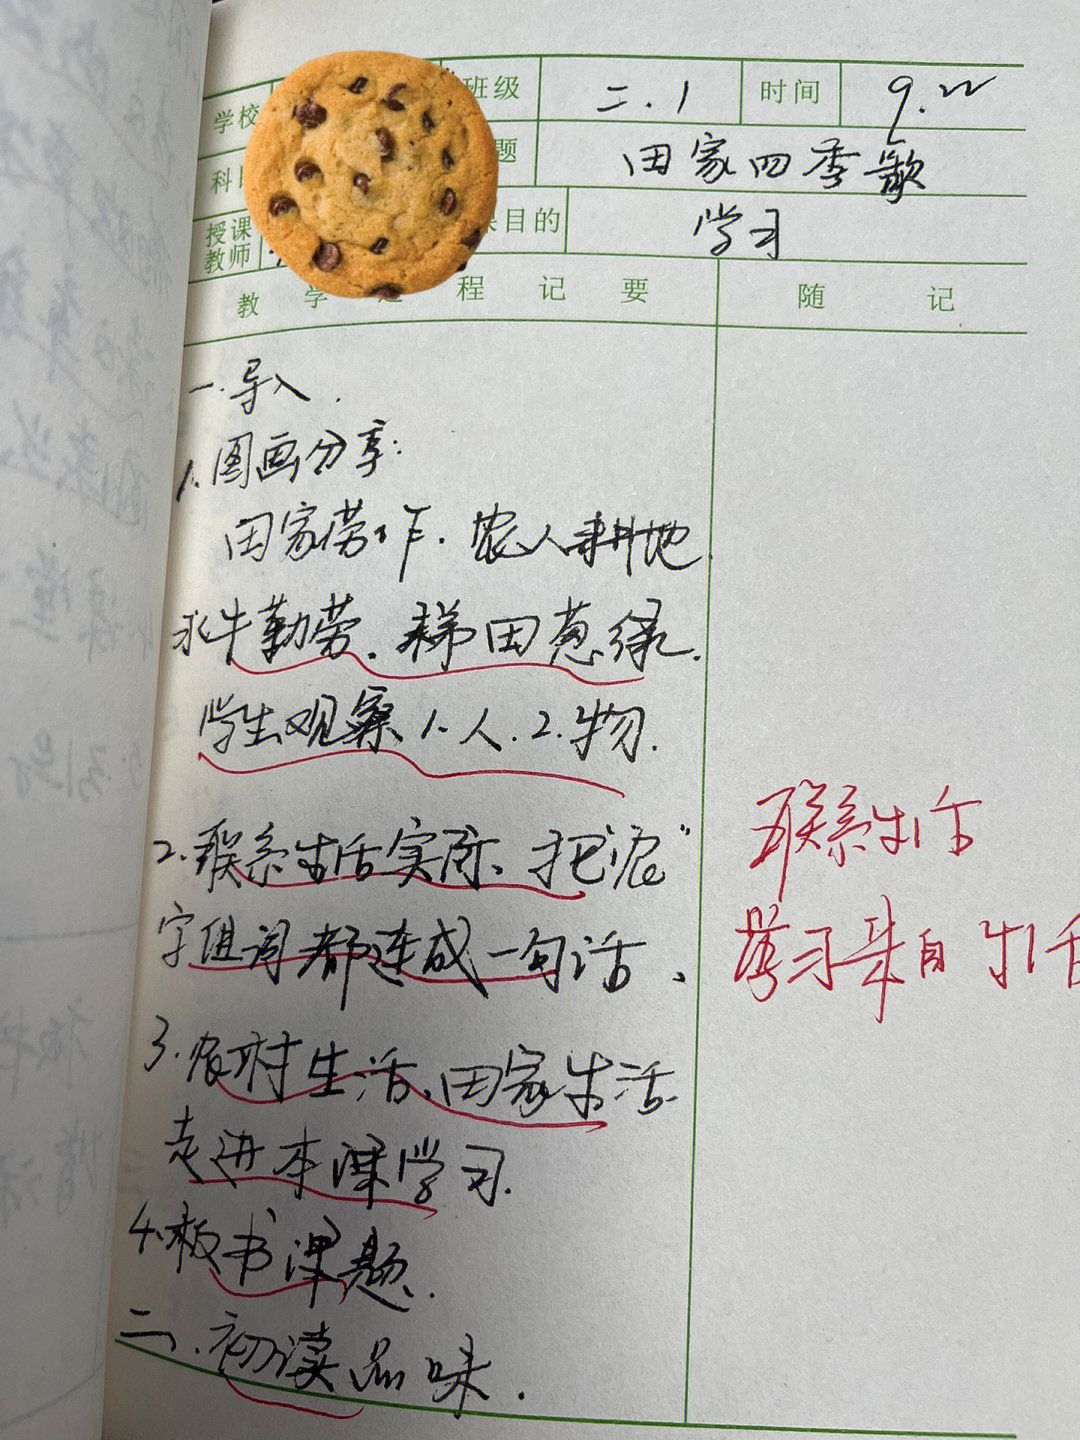 学校 班级 二.1 时间 9.22
科 题 田家四季歌
授课教师 课目的 学习
教 学 过 程 记 要 随 记
一.导入.
1.图画分享:
田家劳作.农人耕地.
水牛勤劳.梯田葱绿.
学生观察 1.人.2.物.
2.联系生活实际、把“农” 联系生活
字组词都连成一句话、 学习来自生活
3.农村生活、田家生活
走进本课学习.
4.板书课题.
二.初读品味.